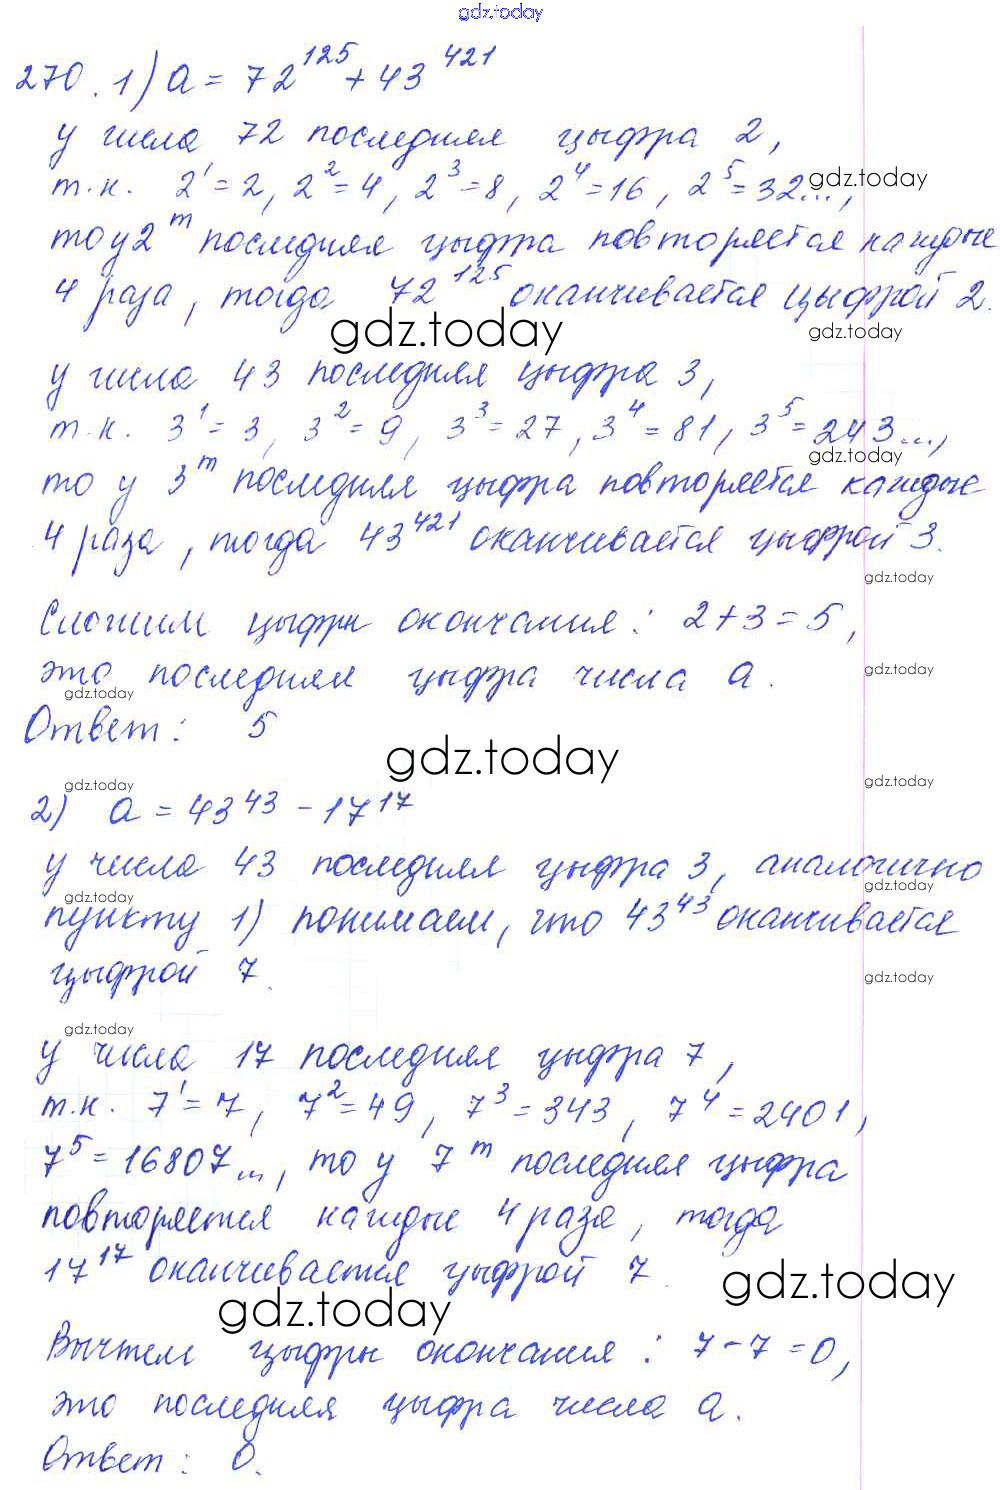 gdz.today
270. 1) a = 72^125 + 43^421
у числа 72 последняя цыфра 2,
т.к. 2^1=2, 2^2=4, 2^3=8, 2^4=16, 2^5=32...,
gdz.today
то у 2^m последняя цыфра повторяется каждые
4 раза, тогда 72^125 оканчивается цыфрой 2.
gdz.today
gdz.today
у числа 43 последняя цыфра 3,
т.к. 3^1=3, 3^2=9, 3^3=27, 3^4=81, 3^5=243...,
gdz.today
то у 3^m последняя цыфра повторяется каждые
4 раза, тогда 43^421 оканчивается цыфрой 3.
gdz.today
Сложим цыфры окончания: 2+3=5,
это последняя цыфра числа a.
gdz.today
gdz.today
Ответ: 5
gdz.today
gdz.today
gdz.today
2) a = 43^43 - 17^17
у числа 43 последняя цыфра 3, аналогично
gdz.today
gdz.today
пункту 1) понимаем, что 43^43 оканчивается
цыфрой 7.
gdz.today
gdz.today
у числа 17 последняя цыфра 7,
т.к. 7^1=7, 7^2=49, 7^3=343, 7^4=2401,
7^5=16807..., то у 7^m последняя цыфра
повторяется каждые 4 раза, тогда
17^17 оканчивается цыфрой 7.
gdz.today
gdz.today
Вычтем цыфры окончания: 7-7=0,
это последняя цыфра числа a.
Ответ: 0.